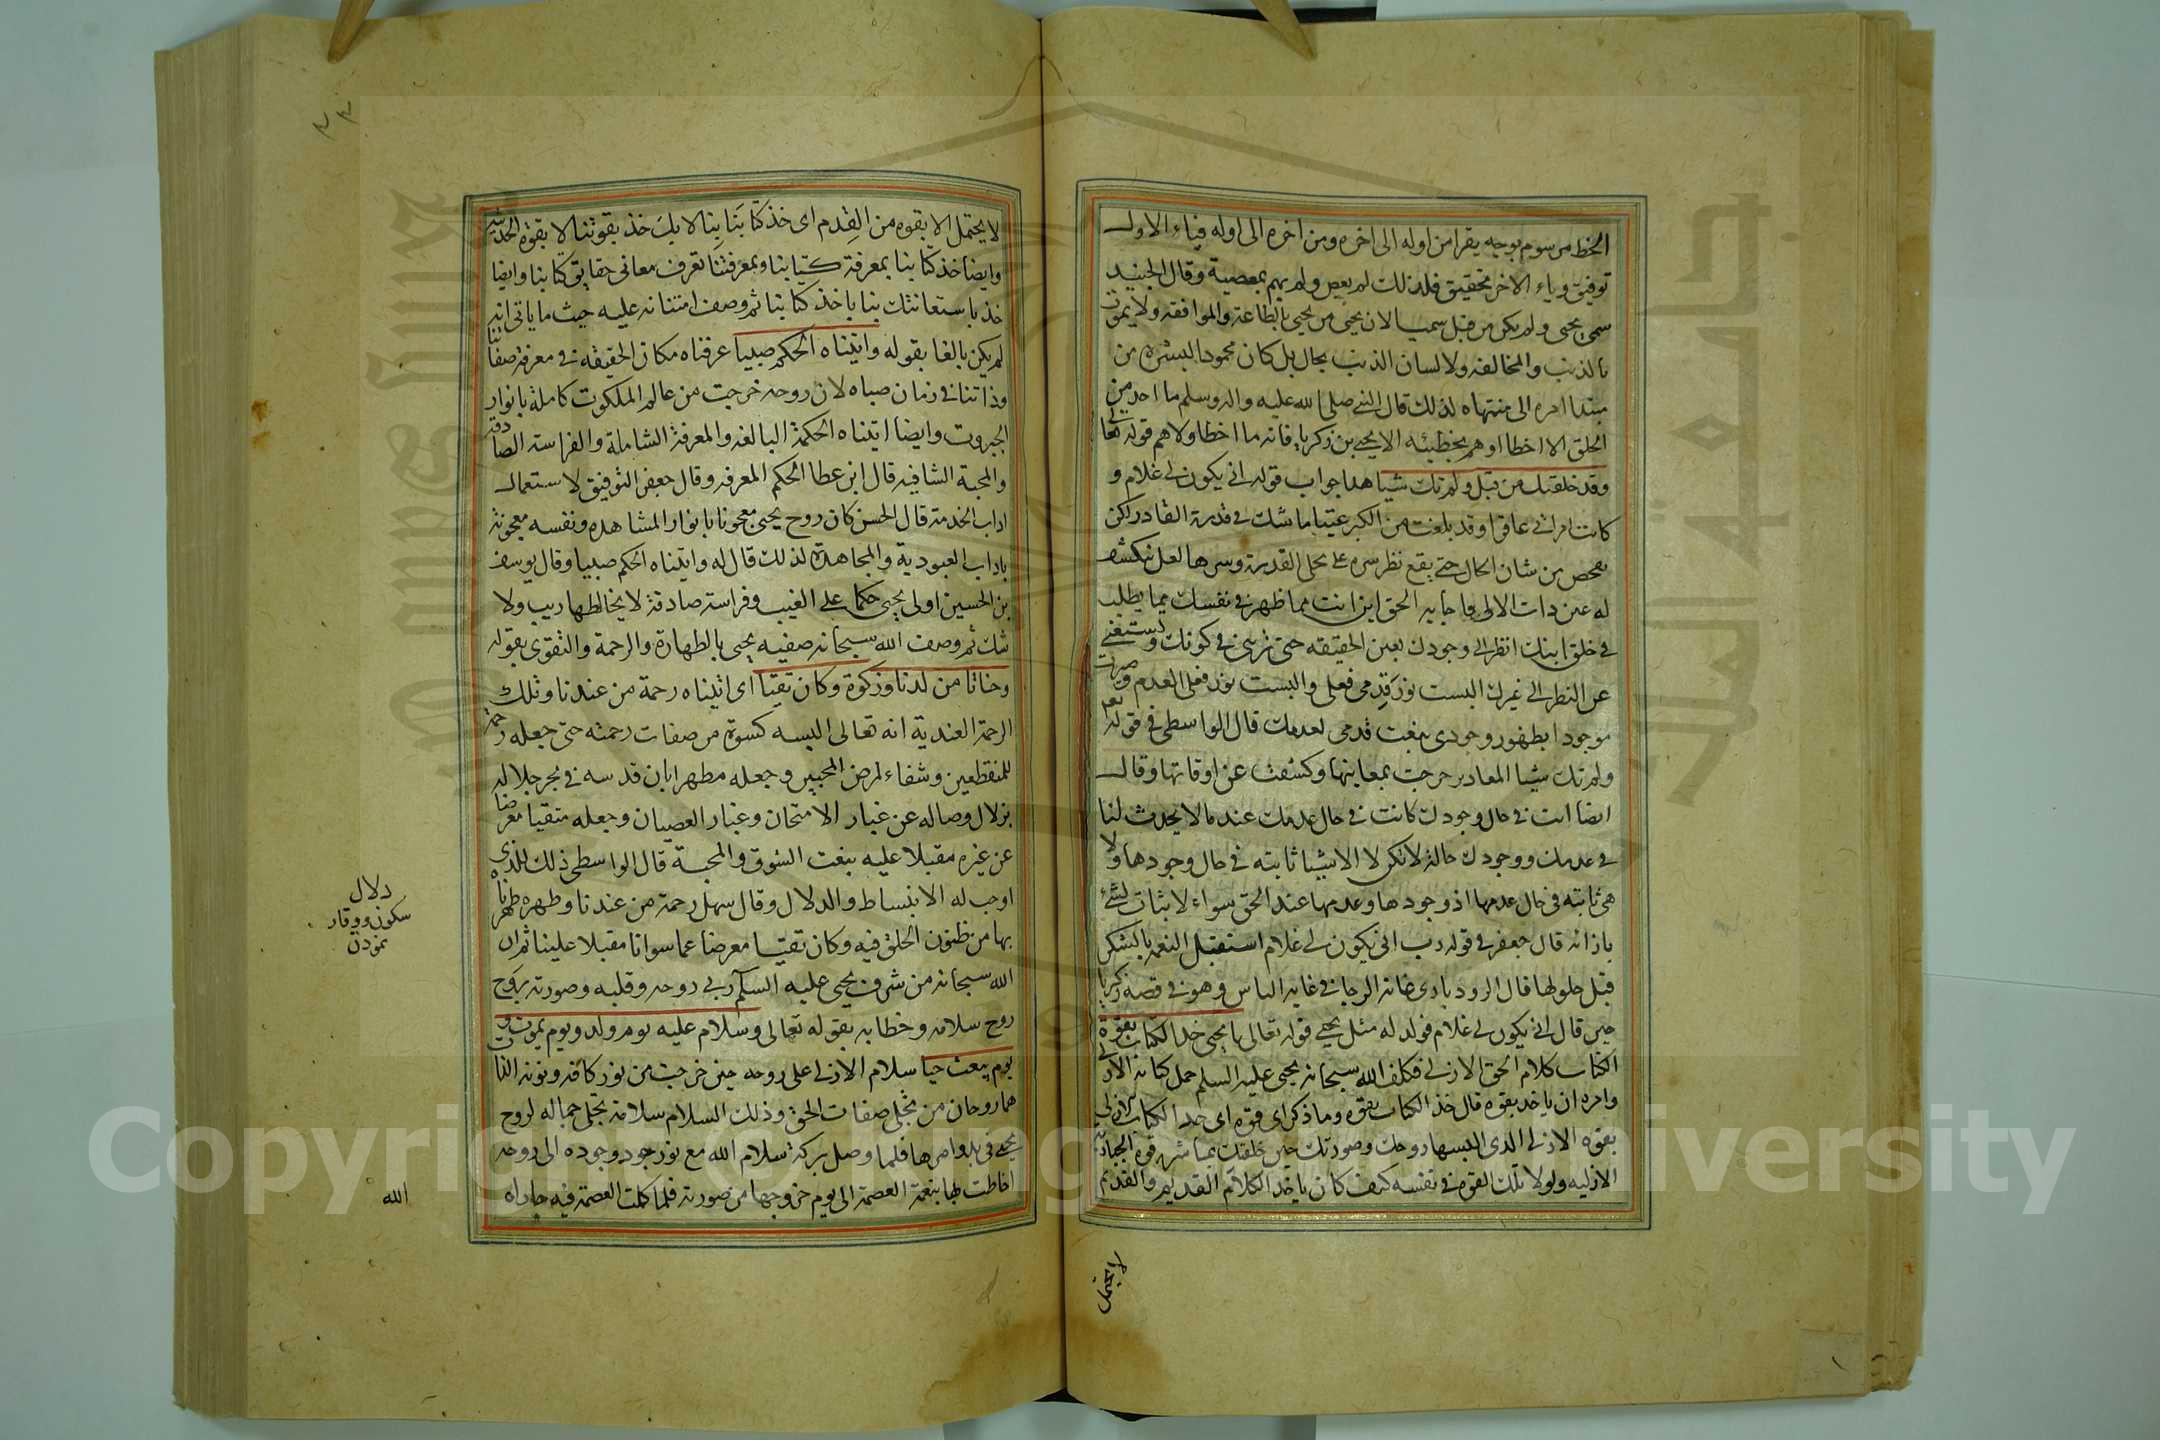 الخط مرسوم بوجيه يقرا من اوله الى اخره ومن اخره الى اوله فياء الاول
توفيق وياء الاخر تحقيق فلذلك لم يعص ولم يهم بمعصية وقال الجنيد
سمى يحيى ولم يكن من قبل سميا لان يحيى من يحيى بالطاعة والموافقه ولا يموت
بالذنب والمخالفه ولا لسان الذنب بحال بل كان محمودا لبشره من
مبتدا امره الى منتهاه لذلك قال النبي صلى الله عليه واله وسلم ما احد من
الخلق الا اخطا او هم بخطيئه الا يحيى بن زكريا فانه ما اخطا ولا هم قوله تعالى
وقد خلقتك من قبل ولم تك شيا هذا جواب قوله انى يكون لى غلام و
كانت امراتى عاقرا وقد بلغت من الكبر عتيا ما شك فى قدرة القادر لكن
تفحص من شان الحال حتى يقع نظر سره على تجلى القدرة وسرها لعل ينكشف
له عين ذات الازلى فاجابه الحق اين انت مما ظهر فى نفسك مما يطلب
فى خلق ابنك انظر الى وجودك بعين الحقيقه حتى ترينى فى كونك وتستغنى
عن النظر الى غيرك البست نور قدمى فعلى والبست نور فعلى العدم وصرت
موجودا بظهور وجودى بنعت قدمى لعدمك قال الواسطى فى قوله
ولم تك شيا المعادير خرجت بمعاينها وكشفت عن اوقاتها وقال
ايضا انت فى حال وجودك كانت فى حال عدمك عندما لا يحدث لنا
فى عدمك ووجودك حالة لا تكن لا الاشيا ثابته فى حال وجودها ولا
هى ثابته فى حال عدمها اذ وجودها وعدمها عند الحق سواء لا ثبات لشئ
باذائه قال جعفر فى قوله رب انى يكون لى غلام استقبل النعمه بالشكر
قبل حلولها قال الرودبادى خانه الرجا فى غايه الياس وهو فى قصه زكريا
حين قال انى يكون لى غلام فولد له مثل يحيى قوله تعالى يا يحيى خذ الكتاب بقوة
الكتاب كلام الحق الازلى فكلف الله سبحانه يحيى عليه السلم حمل كتابه الازلى
وامره ان ياخذ بقوه قال خذ الكتاب بقوه وما ذكر اى قوه اى خذ الكتاب الازلى
بقوه الازلى الذى البسها روحك وصورتك حين خلقتك بمباشرة قوه الجباريه
الازليه ولولا تلك القوه فى نفسه كيف كان ياخذ الكلام القديم والقديم
لا يحتمل
لا يحتمل الا بقوه من القدم اى خذ كتابنا بنا لا بك خذ بقوتنا لا بقوه الحدثيه
وايضا خذ كتابنا بمعرفة كتابنا وبمعرفتنا تعرف معانى حقايق كتابنا وايضا
خذ باستعانتك بنا باخذ كتابنا ثم وصف امتنانه عليه حيث ما ياتى انه
لم يكن بالغا بقوله واتيناه الحكم صبيا عرفناه مكان الحقيقه فى معرفة صفاتنا
وذاتنا فى زمان صباه لان روحه خرجت من عالم الملكوت كاملة بانوار
الجبروت وايضا اتيناه الحكمة البالغه والمعرفة الشاملة والفراسته الصادقه
والمحبة الشافيه قال ابن عطا الحكم المعرفه وقال جعفر التوفيق لاستعمال
اداب الخدمة قال الحسن كان روح يحيى معجونا بانوار المشاهده ونفسه معجونة
باداب العبودية والمجاهدة لذلك قال له واتيناه الحكم صبيا وقال يوسف
بن الحسين اولى يحيى حكما على الغيب وفراسة صادقة لا يخالطها ريب ولا
شك ثم وصف الله سبحانه صفيه يحيى بالطهارة والرحمة والتقوى بقوله
وحنانا من لدنا وزكوة وكان تقيا اى اتيناه رحمة من عندنا وتلك
الرحمة العندية انه تعالى البسه كسوة من صفات رحمته حتى جعله رحمة
للمنقطعين وشفاء لمرض المحبين وجعله مطهرا بان قدسه فى بحر جلاله
بزلال وصاله عن غبار الامتحان وغبار العصيان وجعله متقيا معرضا
عن غيره مقبلا عليه بنعت الشوق والمحبة قال الواسطى ذلك للذى
اوجب له الانبساط والدلال وقال سهل رحمة من عندنا وطهره طهرناه
بها من ظنون الخلق فيه وكان تقيا معرضا عما سوانا مقبلا علينا ثم ان
الله سبحانه من شرف يحيى عليه السلم ربى روحه وقلبه وصورته بروح
روح سلامه وخطابه بقوله تعالى وسلام عليه يوم ولد ويوم يموت و
يوم يبعث حيا سلام الازلى على روحه حين خرجت من نور كافه ونونه اللتان
هما روحان من تجلى صفات الحق وذلك السلام سلامة تجلى جماله لروح
يحيى فى بدو امرها فلما وصل بركة سلام الله مع نور جود وجوده الى روحه
احاطت بها بنعمة العصمة الى يوم خروجها من صورته فلما كملت العصمة فيه جاراه
دلال
سكون ووقار
نمودن
الله
Copyright © King University